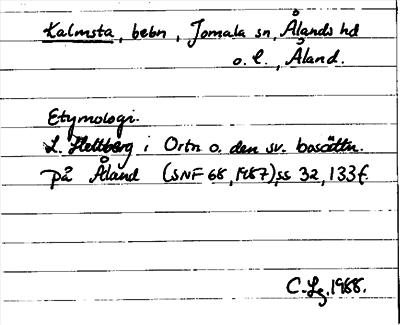 Kalmsta, bebn, Jomala sn, Ålands hd
o. l., Åland.
Etymologi.
L. Hellberg i Ortn o. den sv. bosättn.
på Åland (SNF 68, 1987), ss 32, 133f.
C. Lg. 1988.